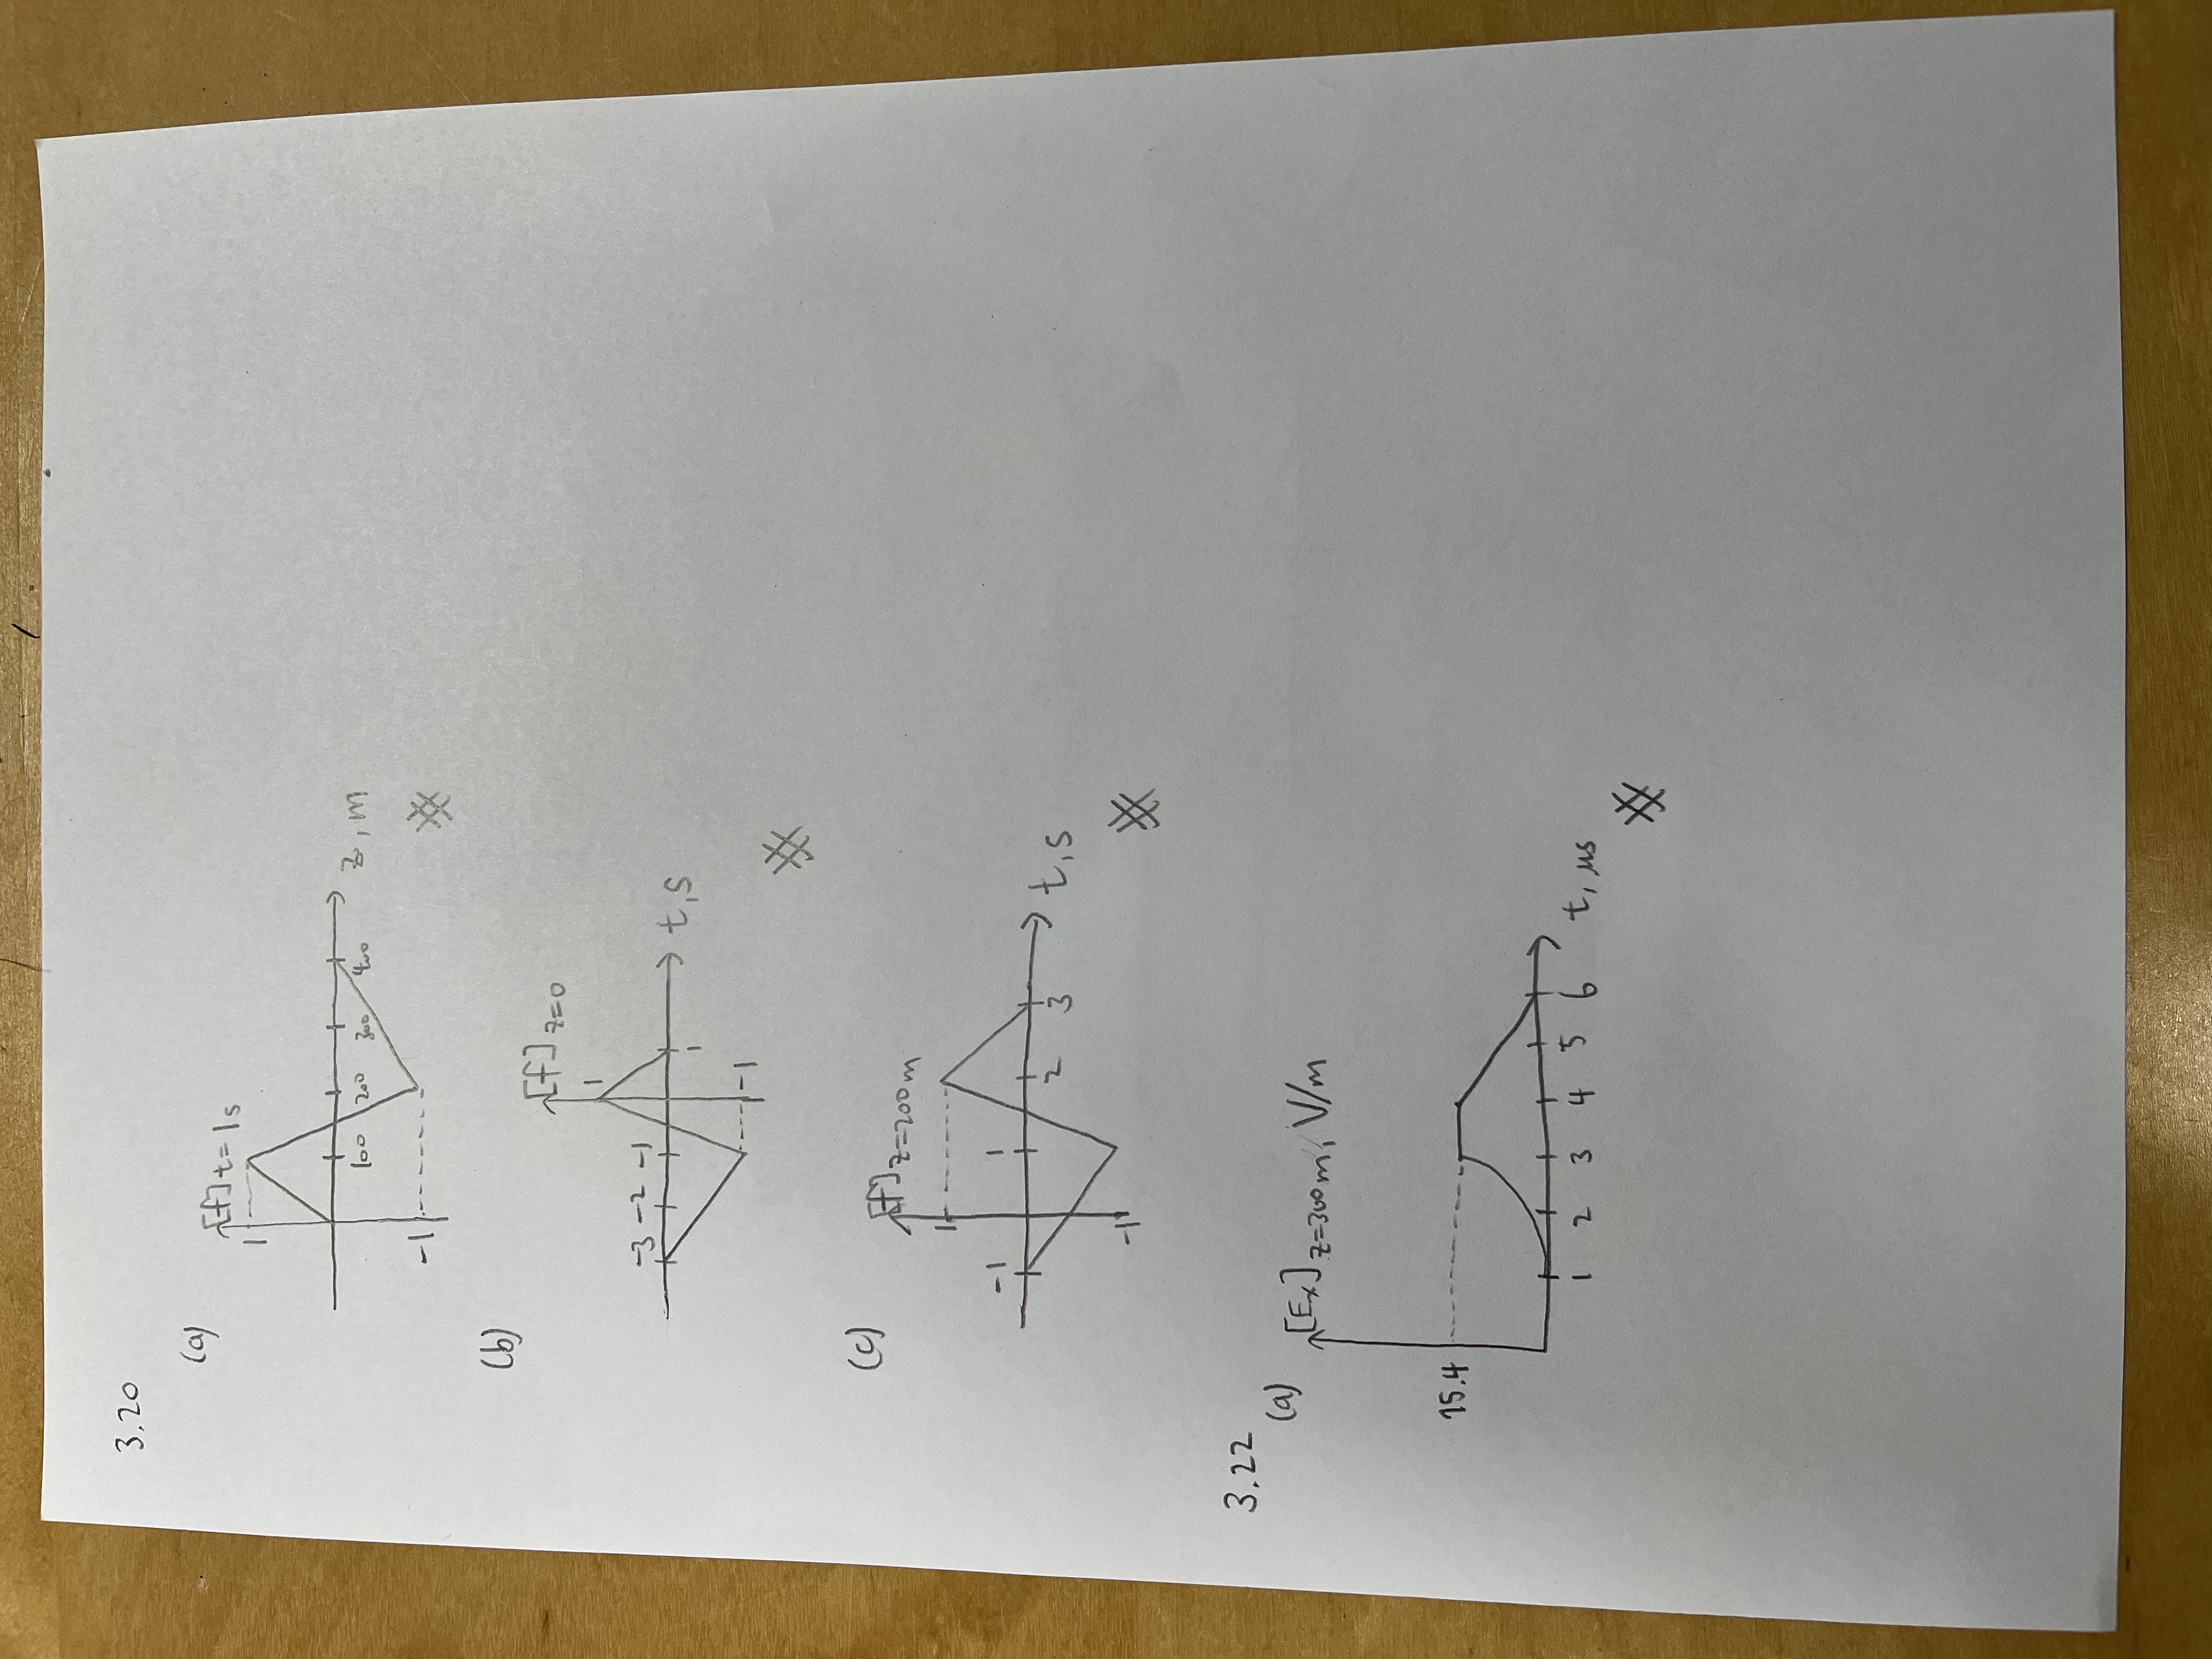 3.20
(a)
[f] t=1s
1
100 200 300 400
z, m
-1
(b)
[f] z=0
1
-3 -2 -1
t,s
1
-1
(c)
[f] z=200m
1
-1 1
2 3
t,s
-1
3.22
(a)
[Ex] z=300m, V/m
15.4
1 2 3 4 5 6
t, μs